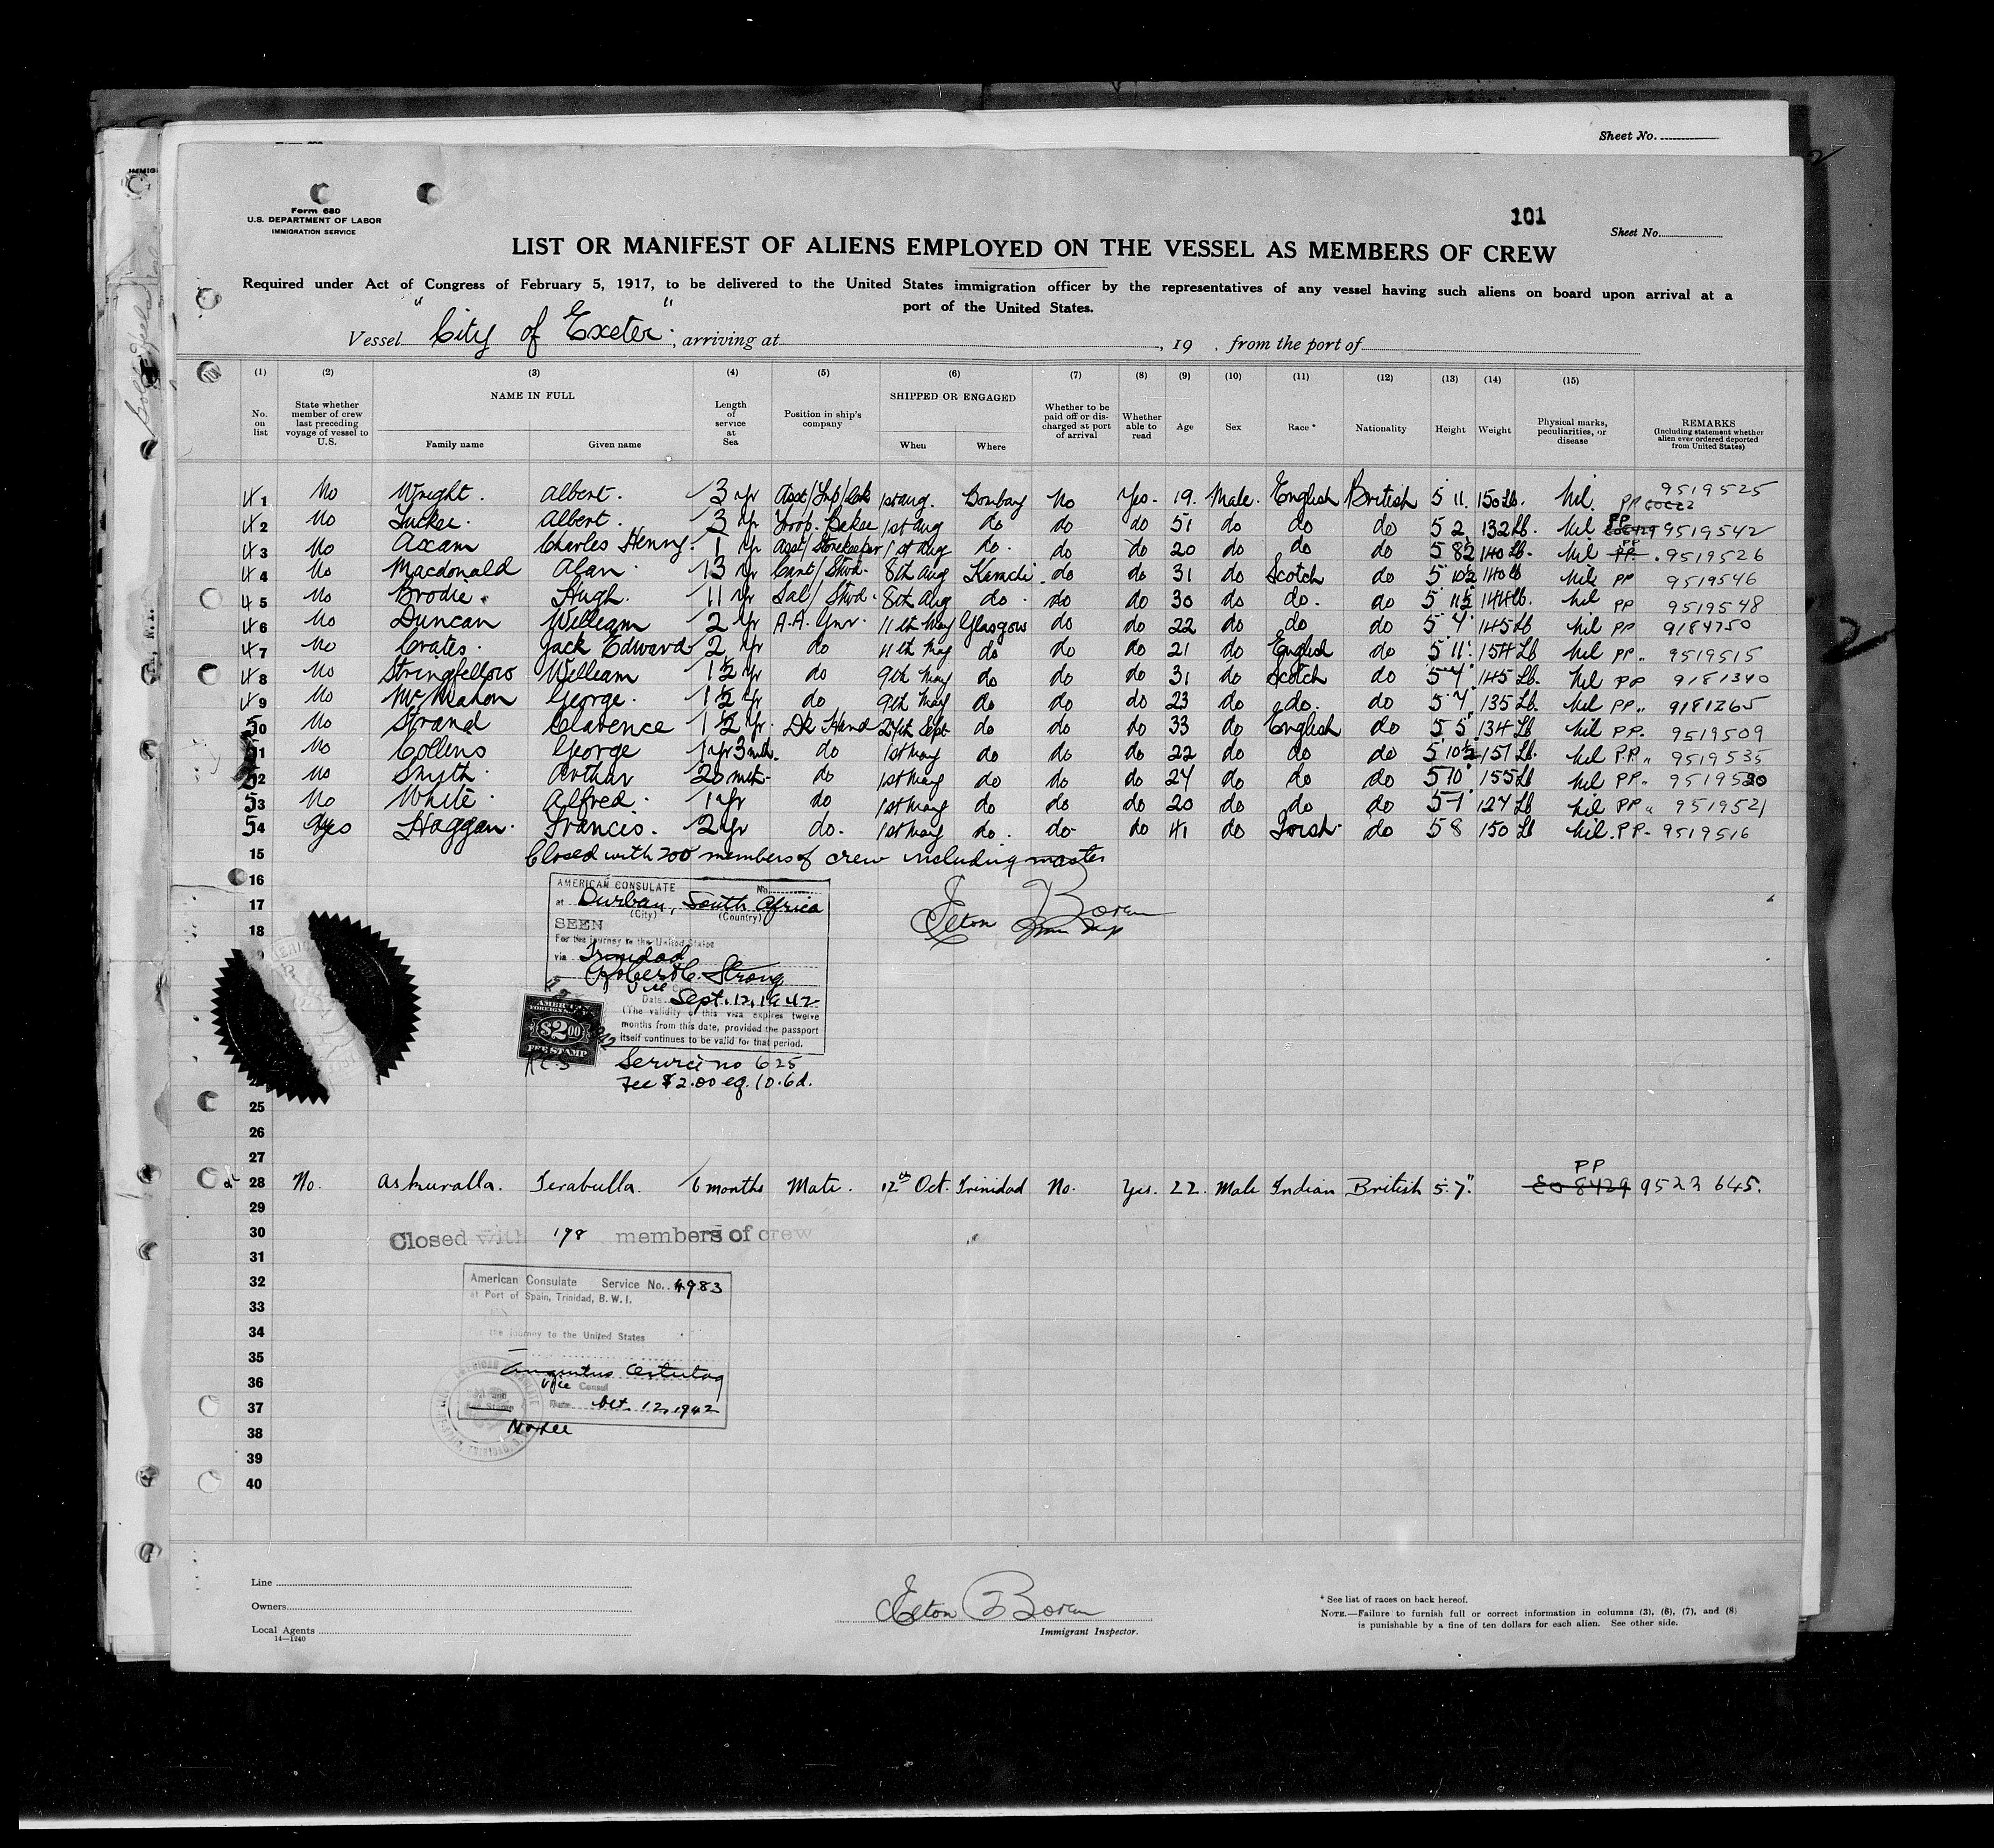 Sheet No.
Form 680
U.S. DEPARTMENT OF LABOR
IMMIGRATION SERVICE
101
Sheet No.
LIST OR MANIFEST OF ALIENS EMPLOYED ON THE VESSEL AS MEMBERS OF CREW
Required under Act of Congress of February 5, 1917, to be delivered to the United States immigration officer by the representatives of any vessel having such aliens on board upon arrival at a
port of the United States.
Vessel "City of Exeter", arriving at , 19 . from the port of
(1) (2) (3) (4) (5) (6) (7) (8) (9) (10) (11) (12) (13) (14) (15)
No. on list State whether member of crew last preceding voyage of vessel to U.S. NAME IN FULL Family name Given name Length of service at Sea Position in ship's company SHIPPED OR ENGAGED When Where Whether to be paid off or discharged at port of arrival Whether able to read Age Sex Race * Nationality Height Weight Physical marks, peculiarities, or disease REMARKS (Including statement whether alien ever ordered deported from United States)
41 No Wright. Albert. 3 yr 1st aug. Bombay No Yes. 19. Male. English British 5 11. 150 Lb. Nil. PP 9519525
42 No Tucker. Albert. 3 yr Troop. Baker 1st aug do do do 51 do do do 5 2 132 Lb. Nil PP 9519542
43 No Axam Charles Henry. 1 yr Asst/Storekeeper 1st aug do. do do 20 do do do 5 8½ 140 Lb. Nil PP. 9519526
44 No Macdonald Alan. 13 yr 8th aug Karachi. do do 31 do Scotch do 5 10½ 140 lb Nil PP 9519546
45 No Brodie. Hugh. 11 yr Sal/Stwd. 8th aug do. do do 30 do do. do 5 11½ 144 lb. Nil PP 9519548
46 No Duncan William 2 yr A.A. Gnr. 11th May Glasgow do do 22 do do do 5 7 145 Lb Nil PP 9184750
47 No Crates. Jack Edward 2 yr do 11th May do do do 21 do English do 5 11. 154 Lb Nil PP. 9519515
48 No Stringfellow William 1½ yr do 9th May do do do 31 do Scotch do 5 7 145 Lb. Nil PP 9181340
49 No McMahon George. 1½ yr do 9th May do do do 23 do do. do 5 7 135 Lb. Nil PP. 9181265
50 No Strand Clarence 1½ yr. Dk Hand 27th Sept do do do 33 do English do 5 5 134 Lb Nil PP. 9519509
51 No Collins George 1 yr 3 mth. do 1st May do do do 22 do do do 5 10½ 157 Lb. Nil P.P. 9519535
52 No Smyth. Arthur 20 mth. do 1st May do do do 24 do do do 5 10 155 Lb Nil PP. 9519530
53 No White. Alfred. 1 yr do 1st May do do do 20 do do do 5 7 124 Lb Nil PP. 9519521
54 Yes Haggan. Francis. 2 yr do. 1st May do. do do 41 do Irish do 5 8 150 Lb Nil. PP. 9519516
15 Closed with 200 members of crew including master
16
17
18
AMERICAN CONSULATE No.
at Durban, South Africa
(City) (Country)
SEEN
For the journey to the United States
via Trinidad
Robert C. Strong
Date Sept. 12, 1942
(The validity of this visa expires twelve
months from this date, provided the passport
itself continues to be valid for that period.
AMERICAN
$2.00
FEE STAMP
Service no 625
Fee $2.00 eq. 10.6d.
25
26
27
28 No. Askuralla. Terabulla. 6 months Mate. 12th Oct. Trinidad No. Yes. 22. Male Indian British 5.7" PP Eo 8429 9523 645.
29
30 Closed with 198 members of crew
31
32 American Consulate Service No. 4983
at Port of Spain, Trinidad, B. W. I.
33
34 For the journey to the United States
35
36 Vice Consul
37 Date Oct. 12, 1942
38 No fee
39
40
Line
Owners
Local Agents
14—1240
Immigrant Inspector.
* See list of races on back hereof.
NOTE.—Failure to furnish full or correct information in columns (3), (6), (7), and (8)
is punishable by a fine of ten dollars for each alien. See other side.